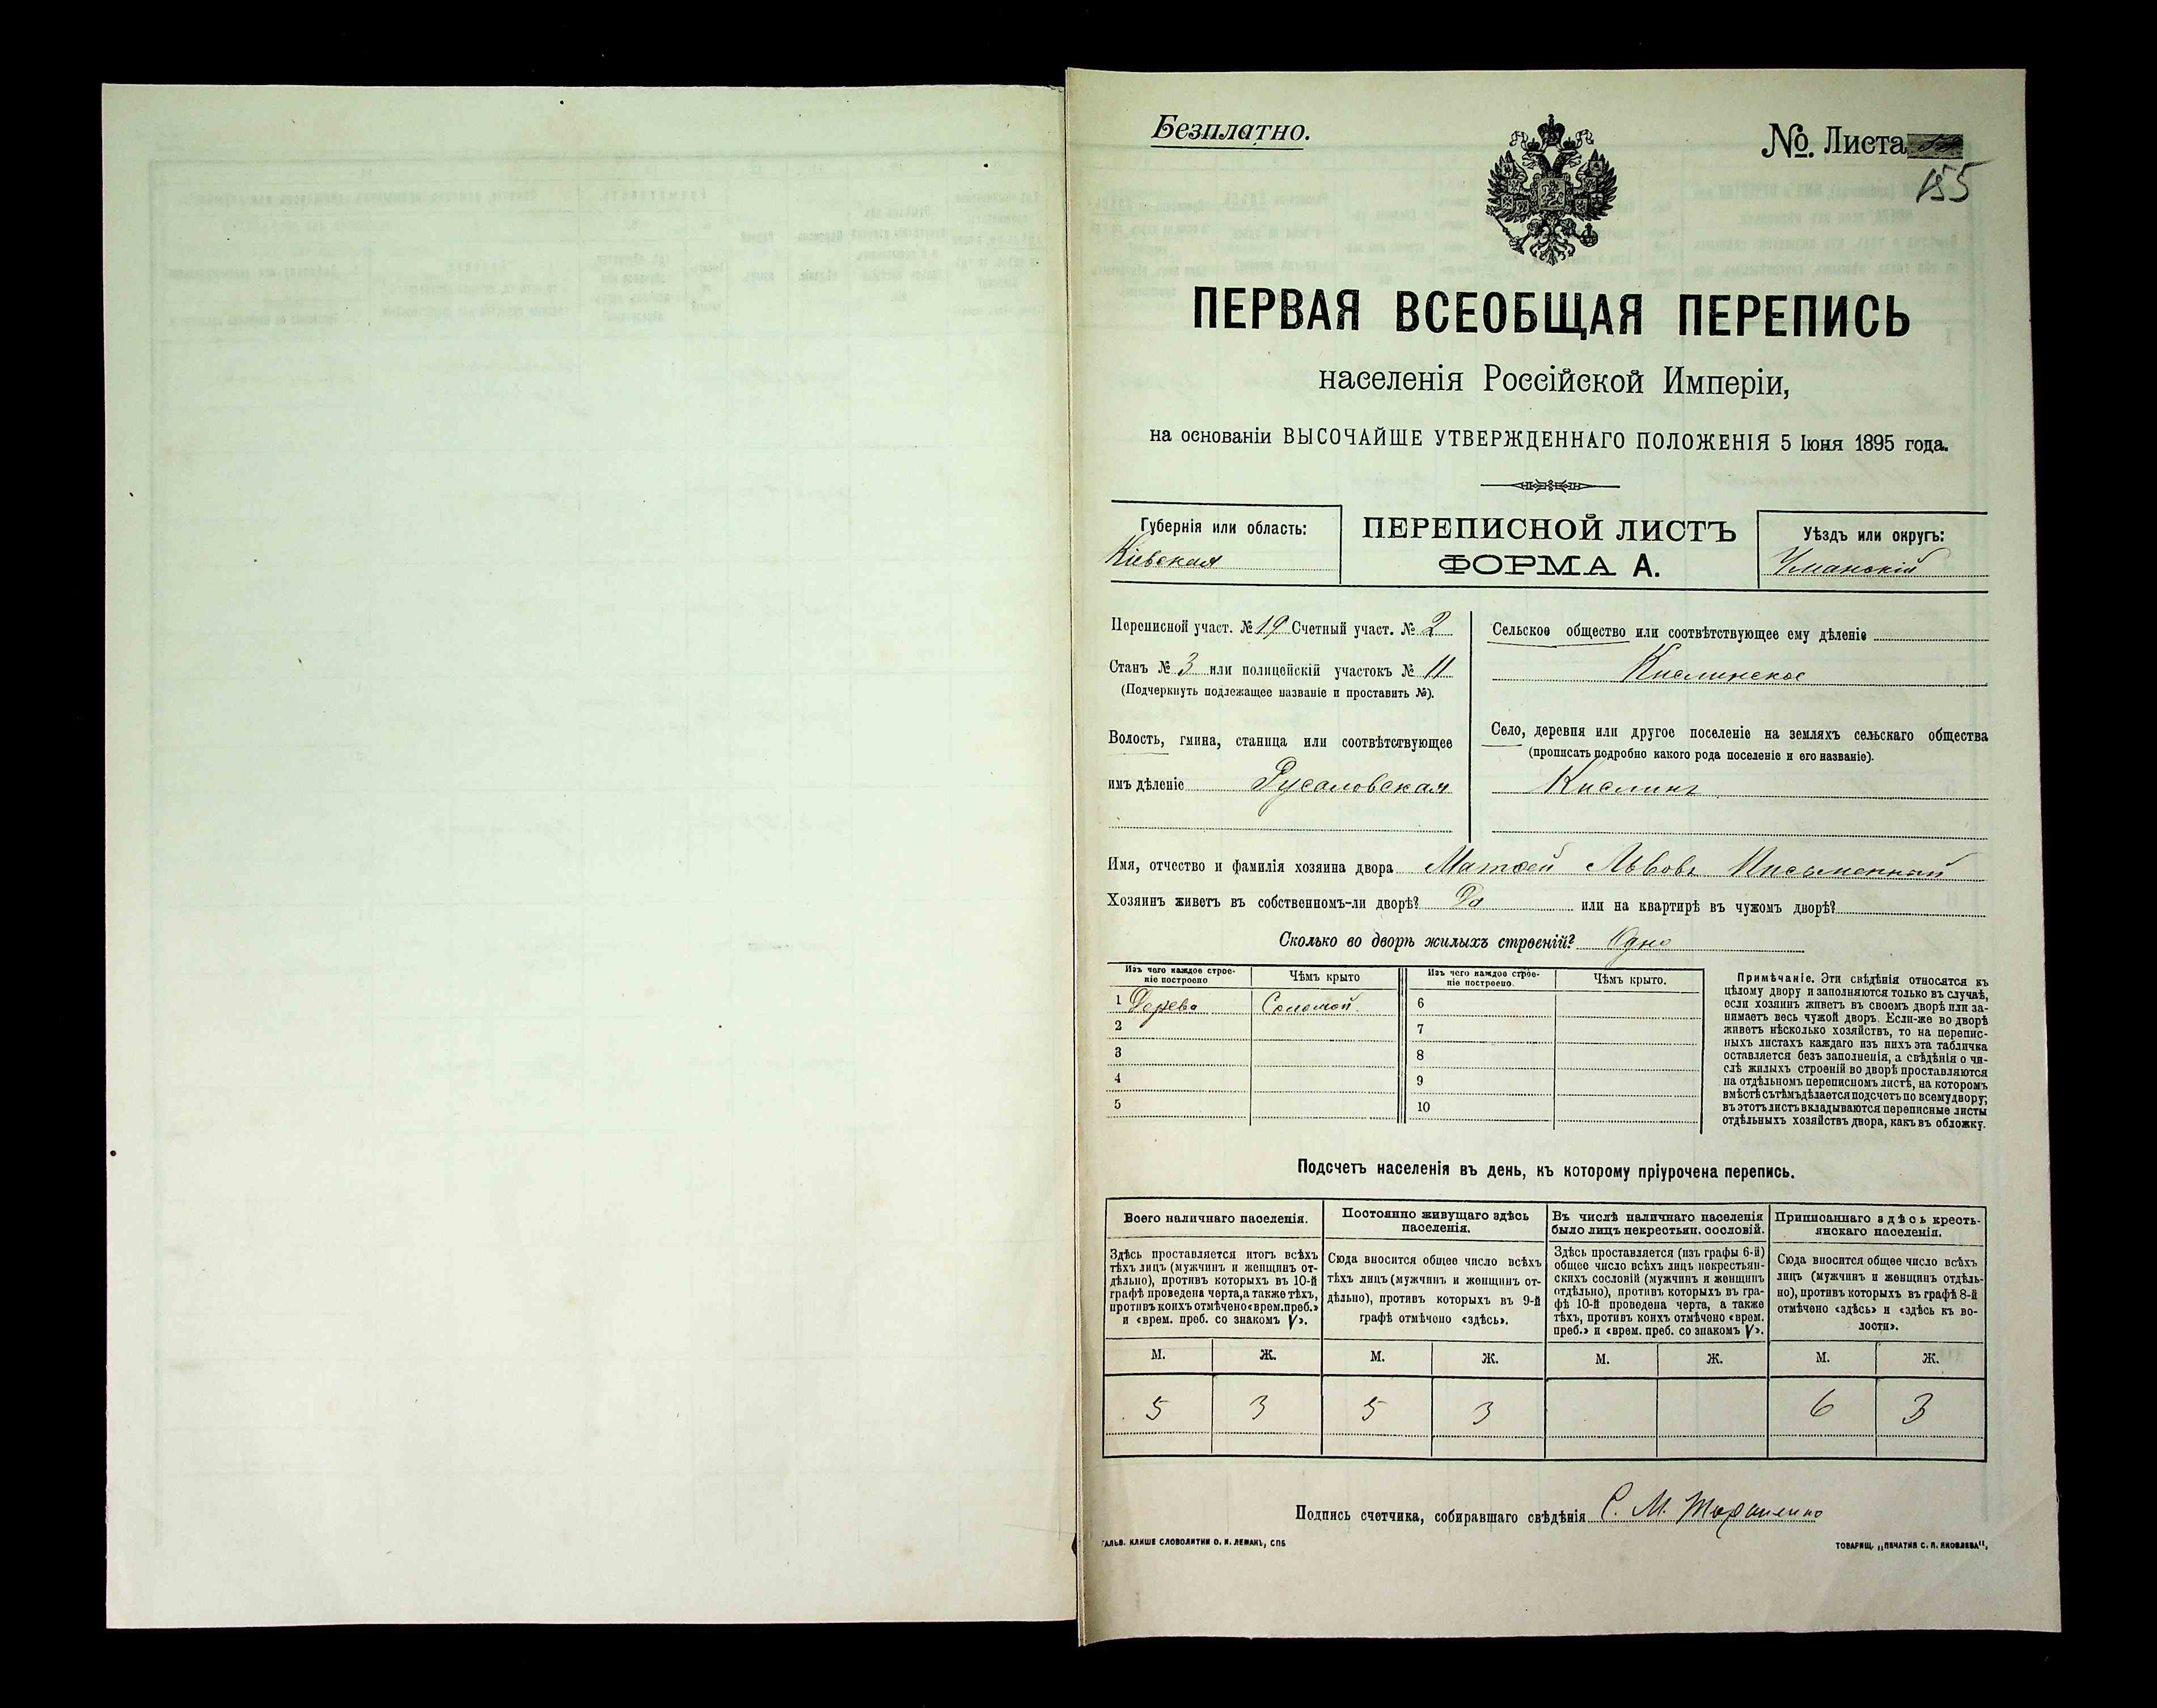 Безплатно.
№. Листа
155
ПЕРВАЯ ВСЕОБЩАЯ ПЕРЕПИСЬ
населенія Россійской Имперіи,
на основаніи ВЫСОЧАЙШЕ УТВЕРЖДЕННАГО ПОЛОЖЕНІЯ 5 Іюня 1895 года.
Губернія или область:
Кіевская
ПЕРЕПИСНОЙ ЛИСТЪ
ФОРМА А.
Уѣздъ или округъ:
Уманскій
Переписной участ. № 19 Счетный участ. № 2
Станъ № 3 или полицейскій участокъ № 11
(Подчеркнуть подлежащее названіе и проставить №).
Волость, гмина, станица или соотвѣтствующее
имъ дѣленіе Русаловская
Сельское общество или соотвѣтствующее ему дѣленіе
Кислинское
Село, деревня или другое поселеніе на земляхъ сельскаго общества
(прописать подробно какого рода поселеніе и его названіе).
Кислинъ
Имя, отчество и фамилія хозяина двора Матвей Львовъ Письменный
Хозяинъ живетъ въ собственномъ-ли дворѣ? Да или на квартирѣ въ чужомъ дворѣ?
Сколько во дворѣ жилыхъ строеній? Одно
Изъ чего каждое строе-
ніе построено
Чѣмъ крыто
Изъ чего каждое строе-
ніе построено.
Чѣмъ крыто.
1 Дерева Соломой. 6
2 7
3 8
4 9
5 10
Примѣчаніе. Эти свѣдѣнія относятся къ
цѣлому двору и заполняются только въ случаѣ,
если хозяинъ живетъ въ своемъ дворѣ или за-
нимаетъ весь чужой дворъ. Если-же во дворѣ
живетъ нѣсколько хозяйствъ, то на перепис-
ныхъ листахъ каждаго изъ нихъ эта табличка
оставляется безъ заполненія, а свѣдѣнія о чи-
слѣ жилыхъ строеній во дворѣ проставляются
на отдѣльномъ переписномъ листѣ, на которомъ
вмѣстѣ съ тѣмъ дѣлается подсчетъ по всему двору;
въ этотъ листъ вкладываются переписные листы
отдѣльныхъ хозяйствъ двора, какъ въ обложку.
Подсчетъ населенія въ день, къ которому пріурочена перепись.
Всего наличнаго населенія.
Здѣсь проставляется итогъ всѣхъ
тѣхъ лицъ (мужчинъ и женщинъ от-
дѣльно), противъ которыхъ въ 10-й
графѣ проведена черта, а также тѣхъ,
противъ коихъ отмѣчено «врем. преб.»
и «врем. преб. со знакомъ V».
Постоянно живущаго здѣсь
населенія.
Сюда вносится общее число всѣхъ
тѣхъ лицъ (мужчинъ и женщинъ от-
дѣльно), противъ которыхъ въ 9-й
графѣ отмѣчено «здѣсь».
Въ числѣ наличнаго населенія
было лицъ некрестьян. сословій.
Здѣсь проставляется (изъ графы 6-й)
общее число всѣхъ лицъ некрестьян-
скихъ сословій (мужчинъ и женщинъ
отдѣльно), противъ которыхъ въ гра-
фѣ 10-й проведена черта, а также
тѣхъ, противъ коихъ отмѣчено «врем.
преб.» и «врем. преб. со знакомъ V».
Приписаннаго здѣсь кресть-
янскаго населенія.
Сюда вносится общее число всѣхъ
лицъ (мужчинъ и женщинъ отдѣль-
но), противъ которыхъ въ графѣ 8-й
отмѣчено «здѣсь» и «здѣсь къ во-
лости».
М. Ж. М. Ж. М. Ж. М. Ж.
5 3 5 3 6 3
Подпись счетчика, собиравшаго свѣдѣнія С. М.
ГАЛЬВ. КЛИШЕ СЛОВОЛИТНИ О. И. ЛЕМАНЪ, СПБ
ТОВАРИЩ. „ПЕЧАТНЯ С. П. ЯКОВЛЕВА",